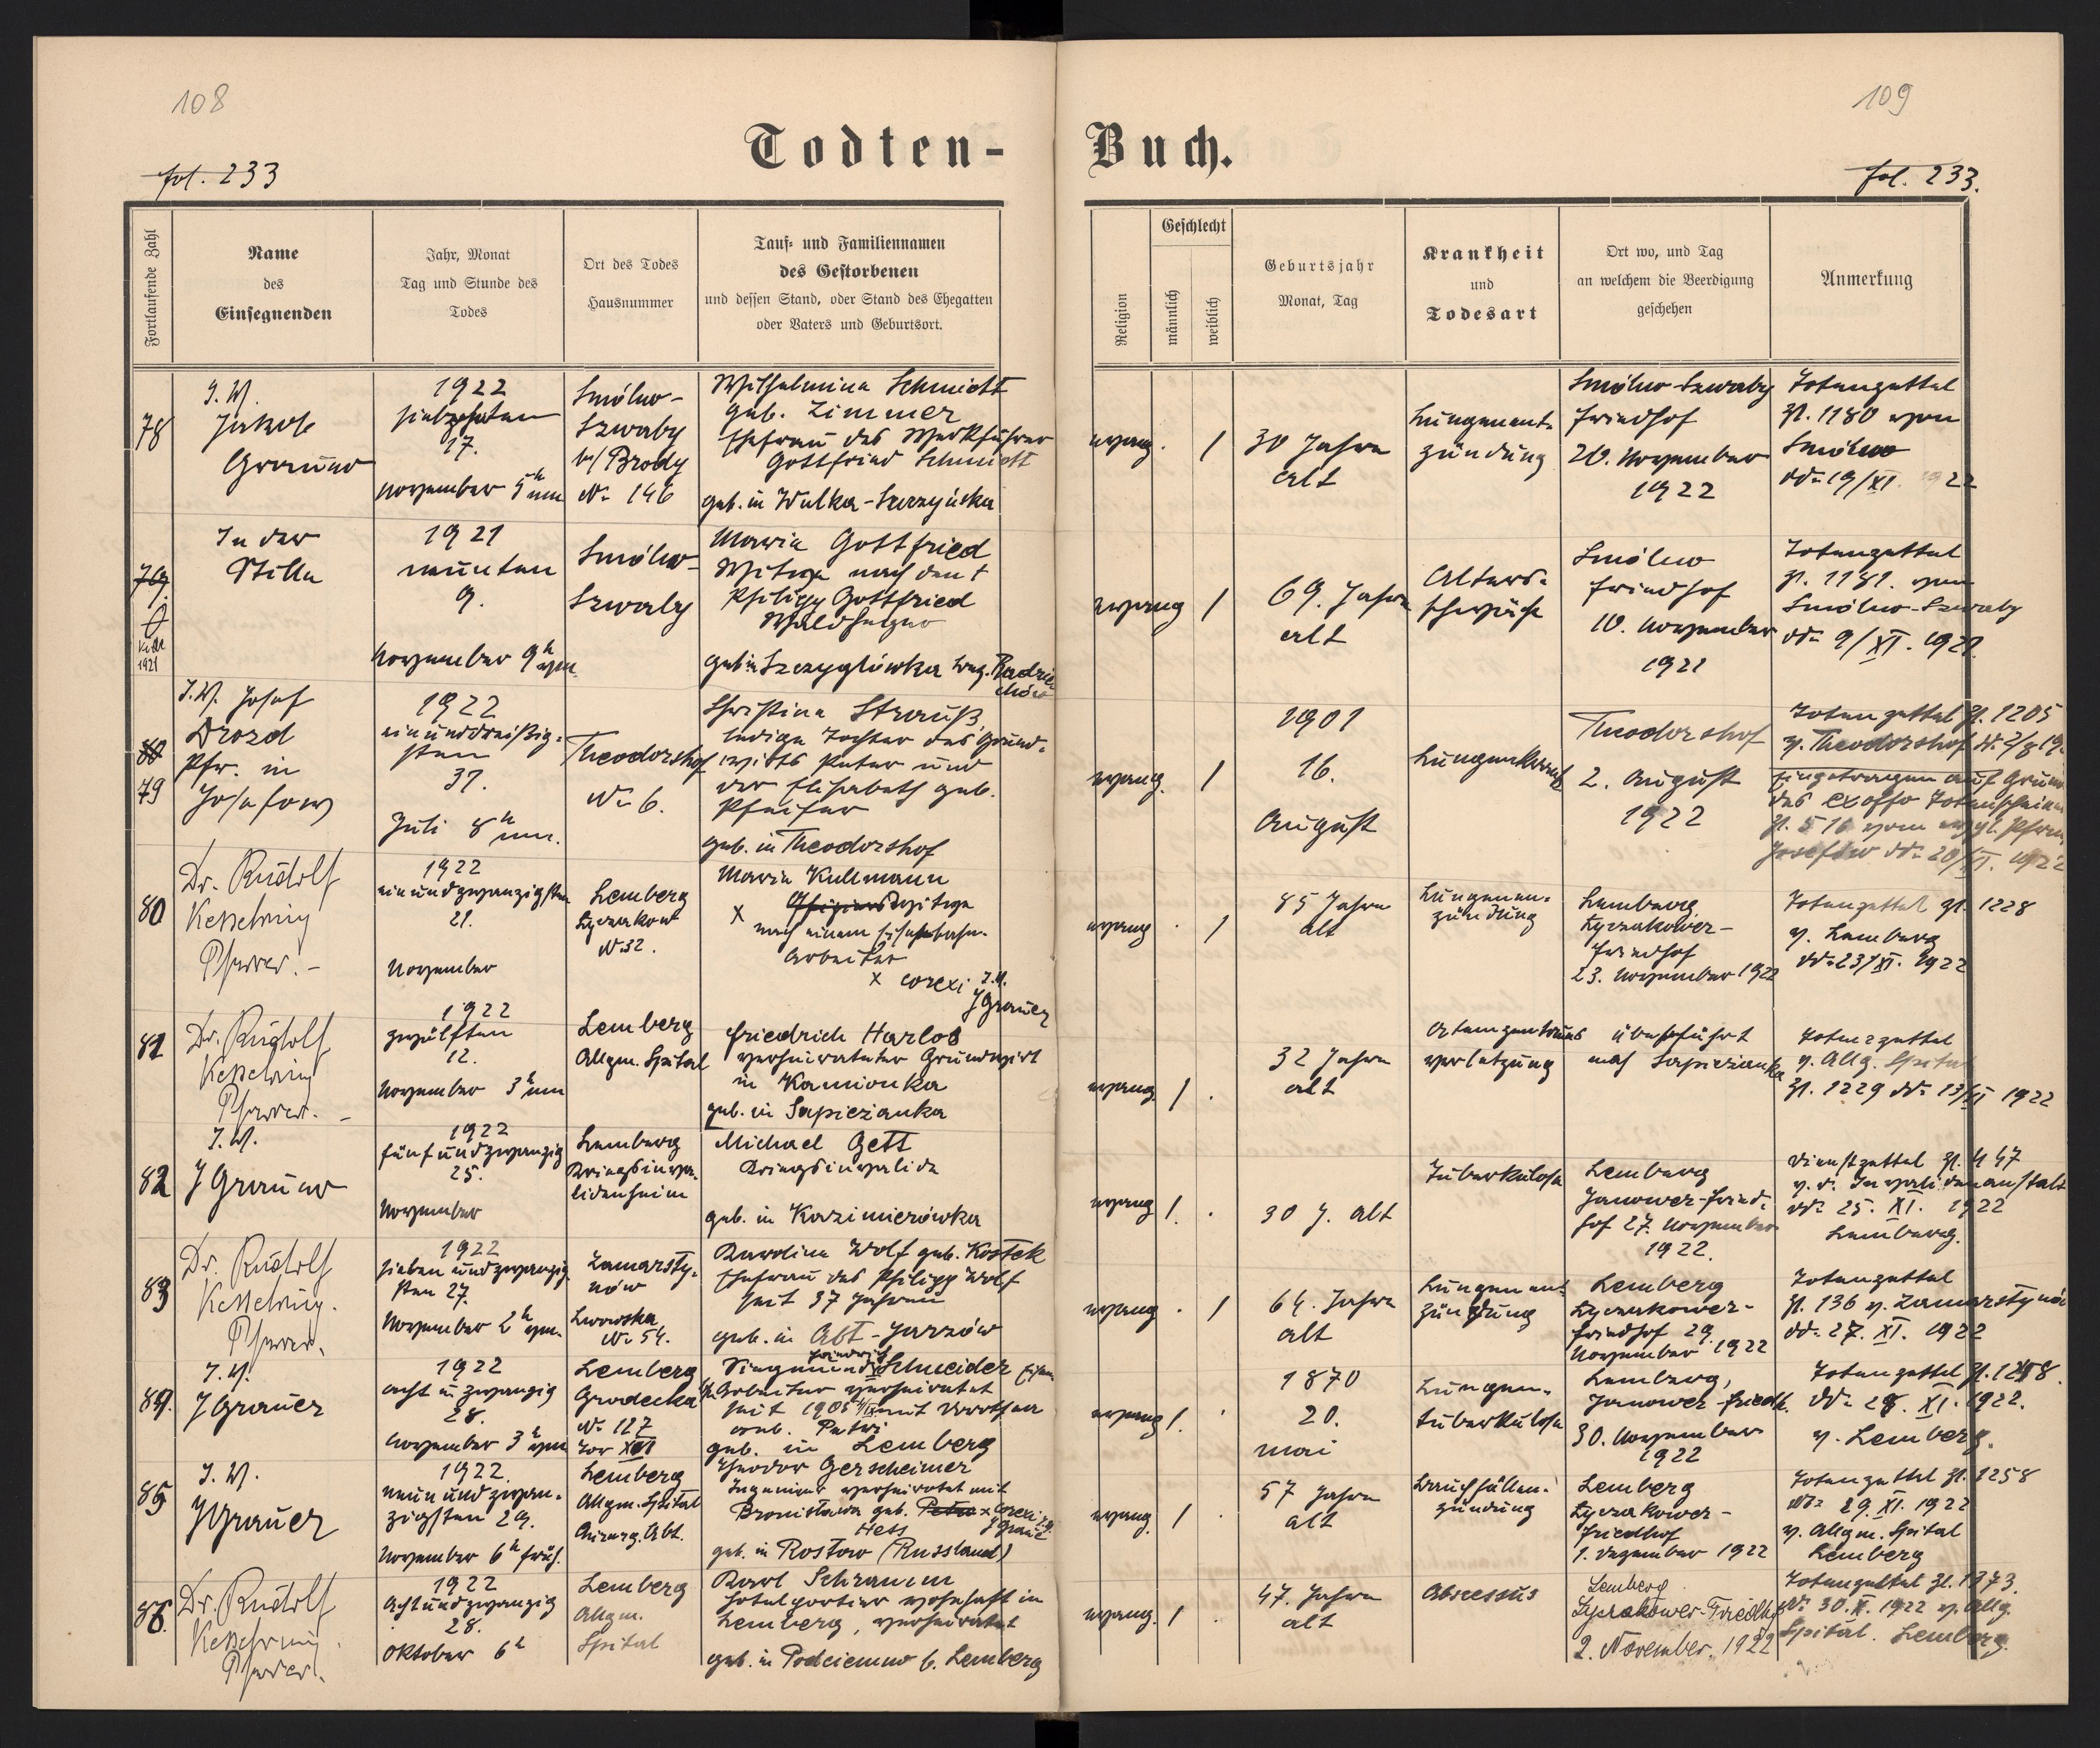 108
109
Todten-
Buch.
fol. 233
fol. 233.
Fortlaufende Zahl
Name
des
Einsegnenden
Jahr, Monat
Tag und Stunde des
Todes
Ort des Todes
Hausnummer
Tauf= und Familiennamen
des Gestorbenen
und dessen Stand, oder Stand des Ehegatten
oder Vaters und Geburtsort.
Religion
Geschlecht
männlich
weiblich
Geburtsjahr
Monat, Tag
Krankheit
und
Todesart
Ort wo, und Tag
an welchem die Beerdigung
geschehen
Anmerkung
78
I. V.
Jakob
Grauer
1922
siebzehnten
17.
November 5h nm
Smólno-
Szwaby
b/ Brody
No 146
Wilhelmina Schmidt
geb. Zimmer
Ehefrau des Werkführer
Gottfried Schmidt
geb. in Wulka-
evang. 1
30 Jahre
alt
Lungenent-
zündung
Smólno-Szwaby
Friedhof
20. November
1922
Totenzettel
Zl. 1180 von
Smólno
dd. 19/XI. 1922
79.
1921
In der
Stille
1921
neunten
9.
November 9h vm.
Smólno-
Szwaby
Maria Gottfried
Witwe nach dem †
Philipp Gottfried
geb in Szczyglówka bez. Radzie
chów
evang 1
69. Jahre
alt
Alters-
schwäche
Smólno
Friedhof
10. November
1921
Totenzettel
Zl. 1181. von
Smólno-Szwaby
dd. 9/XI. 1921.
80
79
I.V. Josef
Drozd
Pfr. in
Josefow
1922
einunddreißig-
sten
31.
Juli 8h nm.
Theodorshof
No 6.
Christina Strauß
ledige Tochter des Grund-
wirts Peter und
der Elisabeth geb.
Pfeifer
geb. in Theodorshof
evang. 1
1901
16.
August
Lungenkrank
Theodorshof
2. August
1922
Totenzettel Zl. 1205
v. Theodorshof
Eingetragen auf Grund
des ex offo Totenschein
Zl. 516 vom evgl. Pfarr
Josefów dd. 20/XI. 1922
80
Dr. Rudolf
Kesselring
Pfarrer. -
1922
einundzwanzigsten
21.
November
Lemberg
Łyczakow
No 32.
Maria Kullmann
x Witwe
nach einem Eisenbahn-
arbeiter
x corexi I.V.
JGrauer
evang . 1
85 Jahre
alt
Lungenen-
zündung
Lemberg
Łyczakower-
Friedhof
23. November 1922
Totenzettel Zl. 1228
v. Lemberg
dd. 23/XI. 1922
81
Dr. Rudolf
Kesselring
Pfarrer. -
1922
zwölften
12.
November 3h nm
Lemberg
Allgm. Spital
Friedrich Harlos
verheirateter Grundwirt
in Kamionka
geb. in Sapieżanka
evang. 1 .
32 Jahre
alt
Atemzentrums
verletzung
überführt
nach Sapieżanka
Totenzettel
v. Allg. Spital
Zl. 1229 dd. 13/XI 1922
82
I. V.
JGrauer
1922
fünfundzwanzig
25.
November
Lemberg
Kriegsinva-
lidenheim
Michael Gett
Kriegsinvalide
geb. in Kazimierówka
evang 1. .
30 J. alt
Tuberkulose
Lemberg
Janower-Fried-
hof 27. November
1922.
Dienstzettel Zl. 447
v. d. Invalidenanstalt
dd. 25. XI. 1922
Lemberg.
83
Dr. Rudolf
Kesselring.
Pfarrer.
1922
siebenundzwanzig-
sten 27.
November 2h vm.
Zamarsty-
nów
Lwowska
No 54.
Karolina Wolf geb. Kostek
Ehefrau des Philipp Wolf
seit 37 Jahren
geb. in Alt-Jarzów
evang . 1
64. Jahre
alt
Lungenent-
zündung
Lemberg
Łyczakower-
Friedhof 29.
November 1922
Totenzettel
Zl. 136 v. Zamarstynów
dd. 27. XI. 1922
84.
I. V.
JGrauer
1922
acht u zwanzig
28.
November 3h vm
Lemberg
Grodecka
No 127
Tor XVI
Friedrich
Siegmund Schneider Eisen
Arbeiter verheiratet
seit 1905 mit Dorothea
geb. in Lemberg
evang 1. .
1870
20.
Mai
Lungen-
tuberkulose
Lemberg,
Janower-Friedh.
30. November
1922
Totenzettel
dd. 28. XI. 1922.
v. Lemberg.
85
I. V.
JGrauer
1922.
neunundzwan-
zigsten 29.
November 6h früh.
Lemberg
Allgm. Spital
Chirurg. Abt.
Theodor Gerscheimer
Ingenieur verheiratet mit
Bronisława geb. x corexi
Hess JGrauer
geb. in Rostow (Russland)
evang. 1 .
57 Jahre
alt
Bauchfellen-
zündung
Lemberg
Łyczakower-
Friedhof
1. Dezember 1922
Totenzettel Zl. 1258
dd. 29. XI. 1922
v. Allgm. Spital
Lemberg
86.
Dr. Rudolf
Kesselring.
Pfarrer.
1922
achtundzwanzig
28.
Oktober 6h
Lemberg
Allgm.
Spital
Karl Schramm
Hotelportier wohnhaft in
Lemberg, verheiratet
geb. in Podciemno b. Lemberg
evang. 1 .
47. Jahre
alt
Abscessus
Lemberg
Łyczakower-Friedhof
2. November. 1922
Totenzettel Zl.
dd. 30. X. 1922 v. Allg.
Spital. Lemberg.